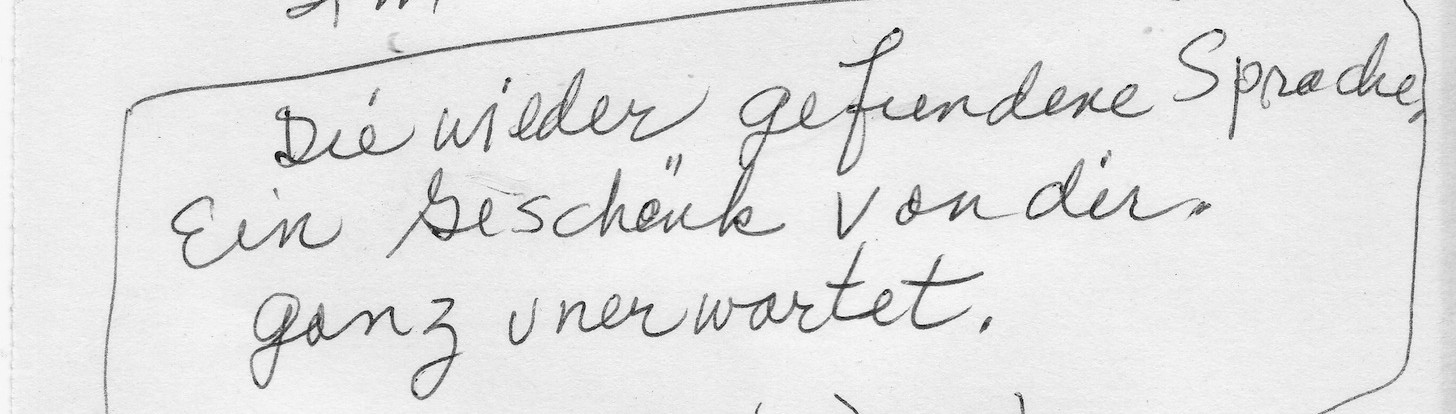 Die wieder gefundene Sprache,
Ein Geschänk von dir.
ganz unerwartet.